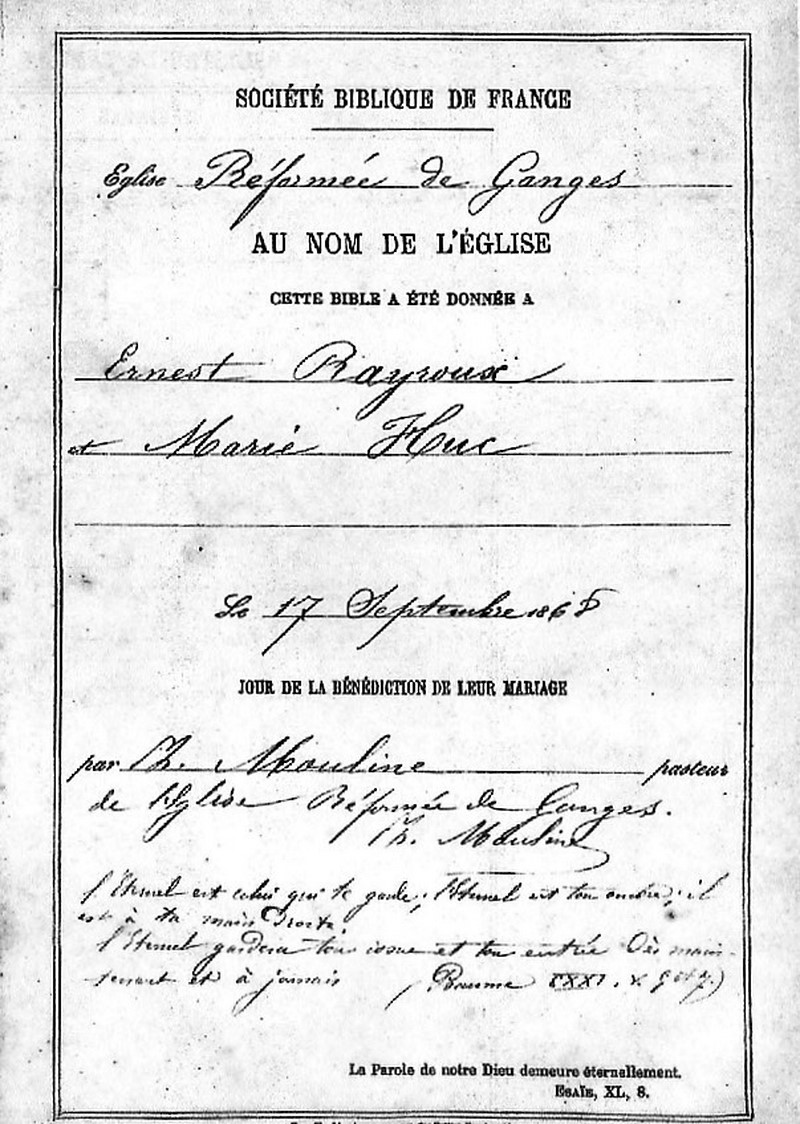 SOCIÉTÉ BIBLIQUE DE FRANCE
Eglise Réformée de Ganges
AU NOM DE L'ÉGLISE
CETTE BIBLE A ÉTÉ DONNÉE A
Ernest Rayroux
et Marie Huc
Le 17 Septembre 1868
JOUR DE LA BÉNÉDICTION DE LEUR MARIAGE
par Th. Mouline pasteur
de l'Eglise Réformée de Ganges.
Th. Mouline
l'Eternel est celui qui te garde; l'Eternel est ton ombre; il
est à ta main droite.
l'Eternel gardera ton issue et ton entrée Dès main-
tenant et à jamais (Psaume CXXI. v.
La Parole de notre Dieu demeure éternellement.
ESAÏE, XL, 8.